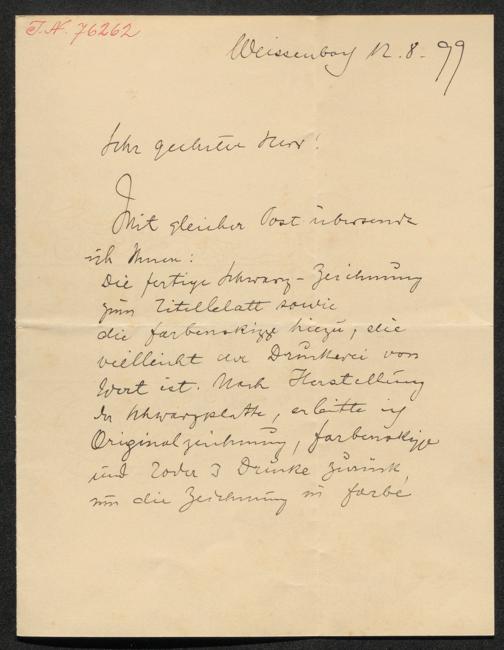 I.N. 76262
Weissenbach 12.8.99
Sehr geehrter Herr!
Mit gleicher Post übersende
ich Ihnen:
Die fertige Schwarz-Zeichnung
zum Titelblatt sowie
die Farbenskizze hiezu, die
vielleicht der Druckerei von
Wert ist. Nach Herstellung
der Schwarzplatte, erbitte ich
Originalzeichnung, Farbenskizze
und 2 oder 3 Drucke zurück,
um die Zeichnung in Farbe